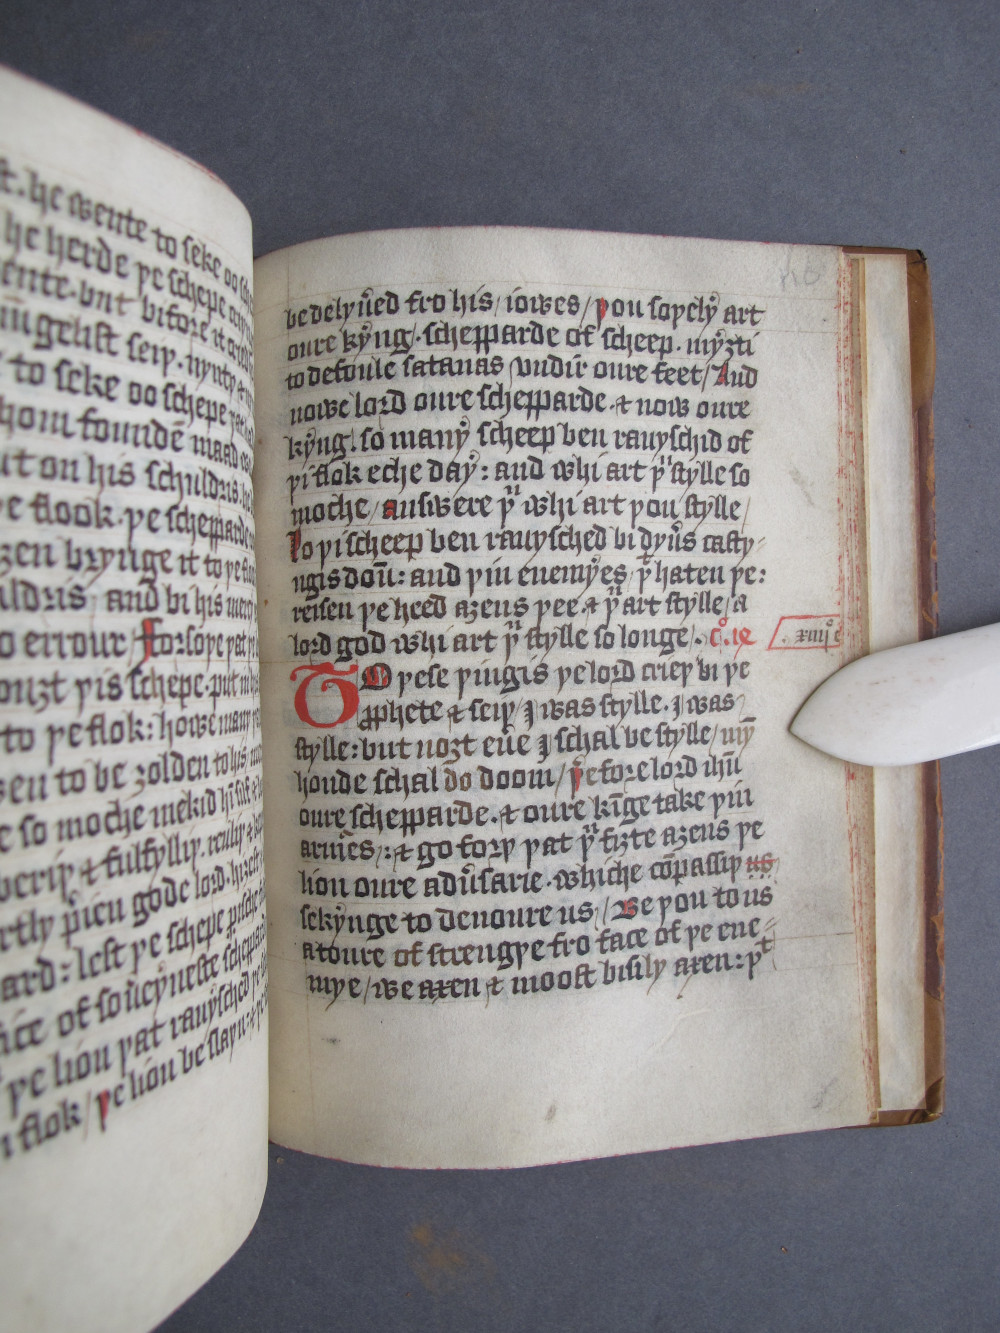 st. he wente to seke oo sche
he herde þe schepe cryy
wente. but bifore it
ungelist seiþ. nynty &
to seke oo schepe þat
hom foundē
ut on his schuldris. he
þe flook. þe schepparde
ȝen brynge it to þe flo
uldris / and bi his mercy
o errour / Forsoþe þat
ouȝt þis schepe. put in his
to þe flok: howe many
en to be ȝolden to his
e so moche mekid hī silf &
veriy & fulfylliþ. reuliþ &
rtly þ͛ieu gode lord.
ard: lest þe schepe
ice of sou͛eyneste scheppard
þe lioū þat rauysched
flok / þe lioū be slayn:
be delyu͛ed fro his / iowes / þou soþely art
oure kyng. schepparde of scheep. myȝti
to defoule satanas vndir oure feet / And
nowe lord oure schepparde. & now oure
kyng. so many scheep ben rauyschid of
þi flok eche day: and whi art þᵘ stylle so
moche / answere þᵘ whi art þou stylle /
lo þi scheep ben rauysched bi dyu͛s casty-
ngis doū: and þin enemyes þᵗ haten þe:
reisen þe heed aȝens þee. & þᵘ art stylle / a
lord god whi art þᵘ stylle so longe /. c͛o. ix
. xiiijº c
TO þese þingis þe lord crieþ bi þe
ꝓphete & seiþ I was stylle. I was
stylle: but noȝt eu͛e I schal be stylle / my
honde schal do doom / þ͛efore lord ihū
oure schepparde. & oure kīge take þin
armes /: & go forþ þat þᵘ fiȝte aȝens þe
lion oure adu͛sarie. whiche cōpassiþ us
sekynge to deuoure us / Be þou to us
a toure of strengþe fro face of þe ene-
mye / we axen & moost bisily axen: þᵗ